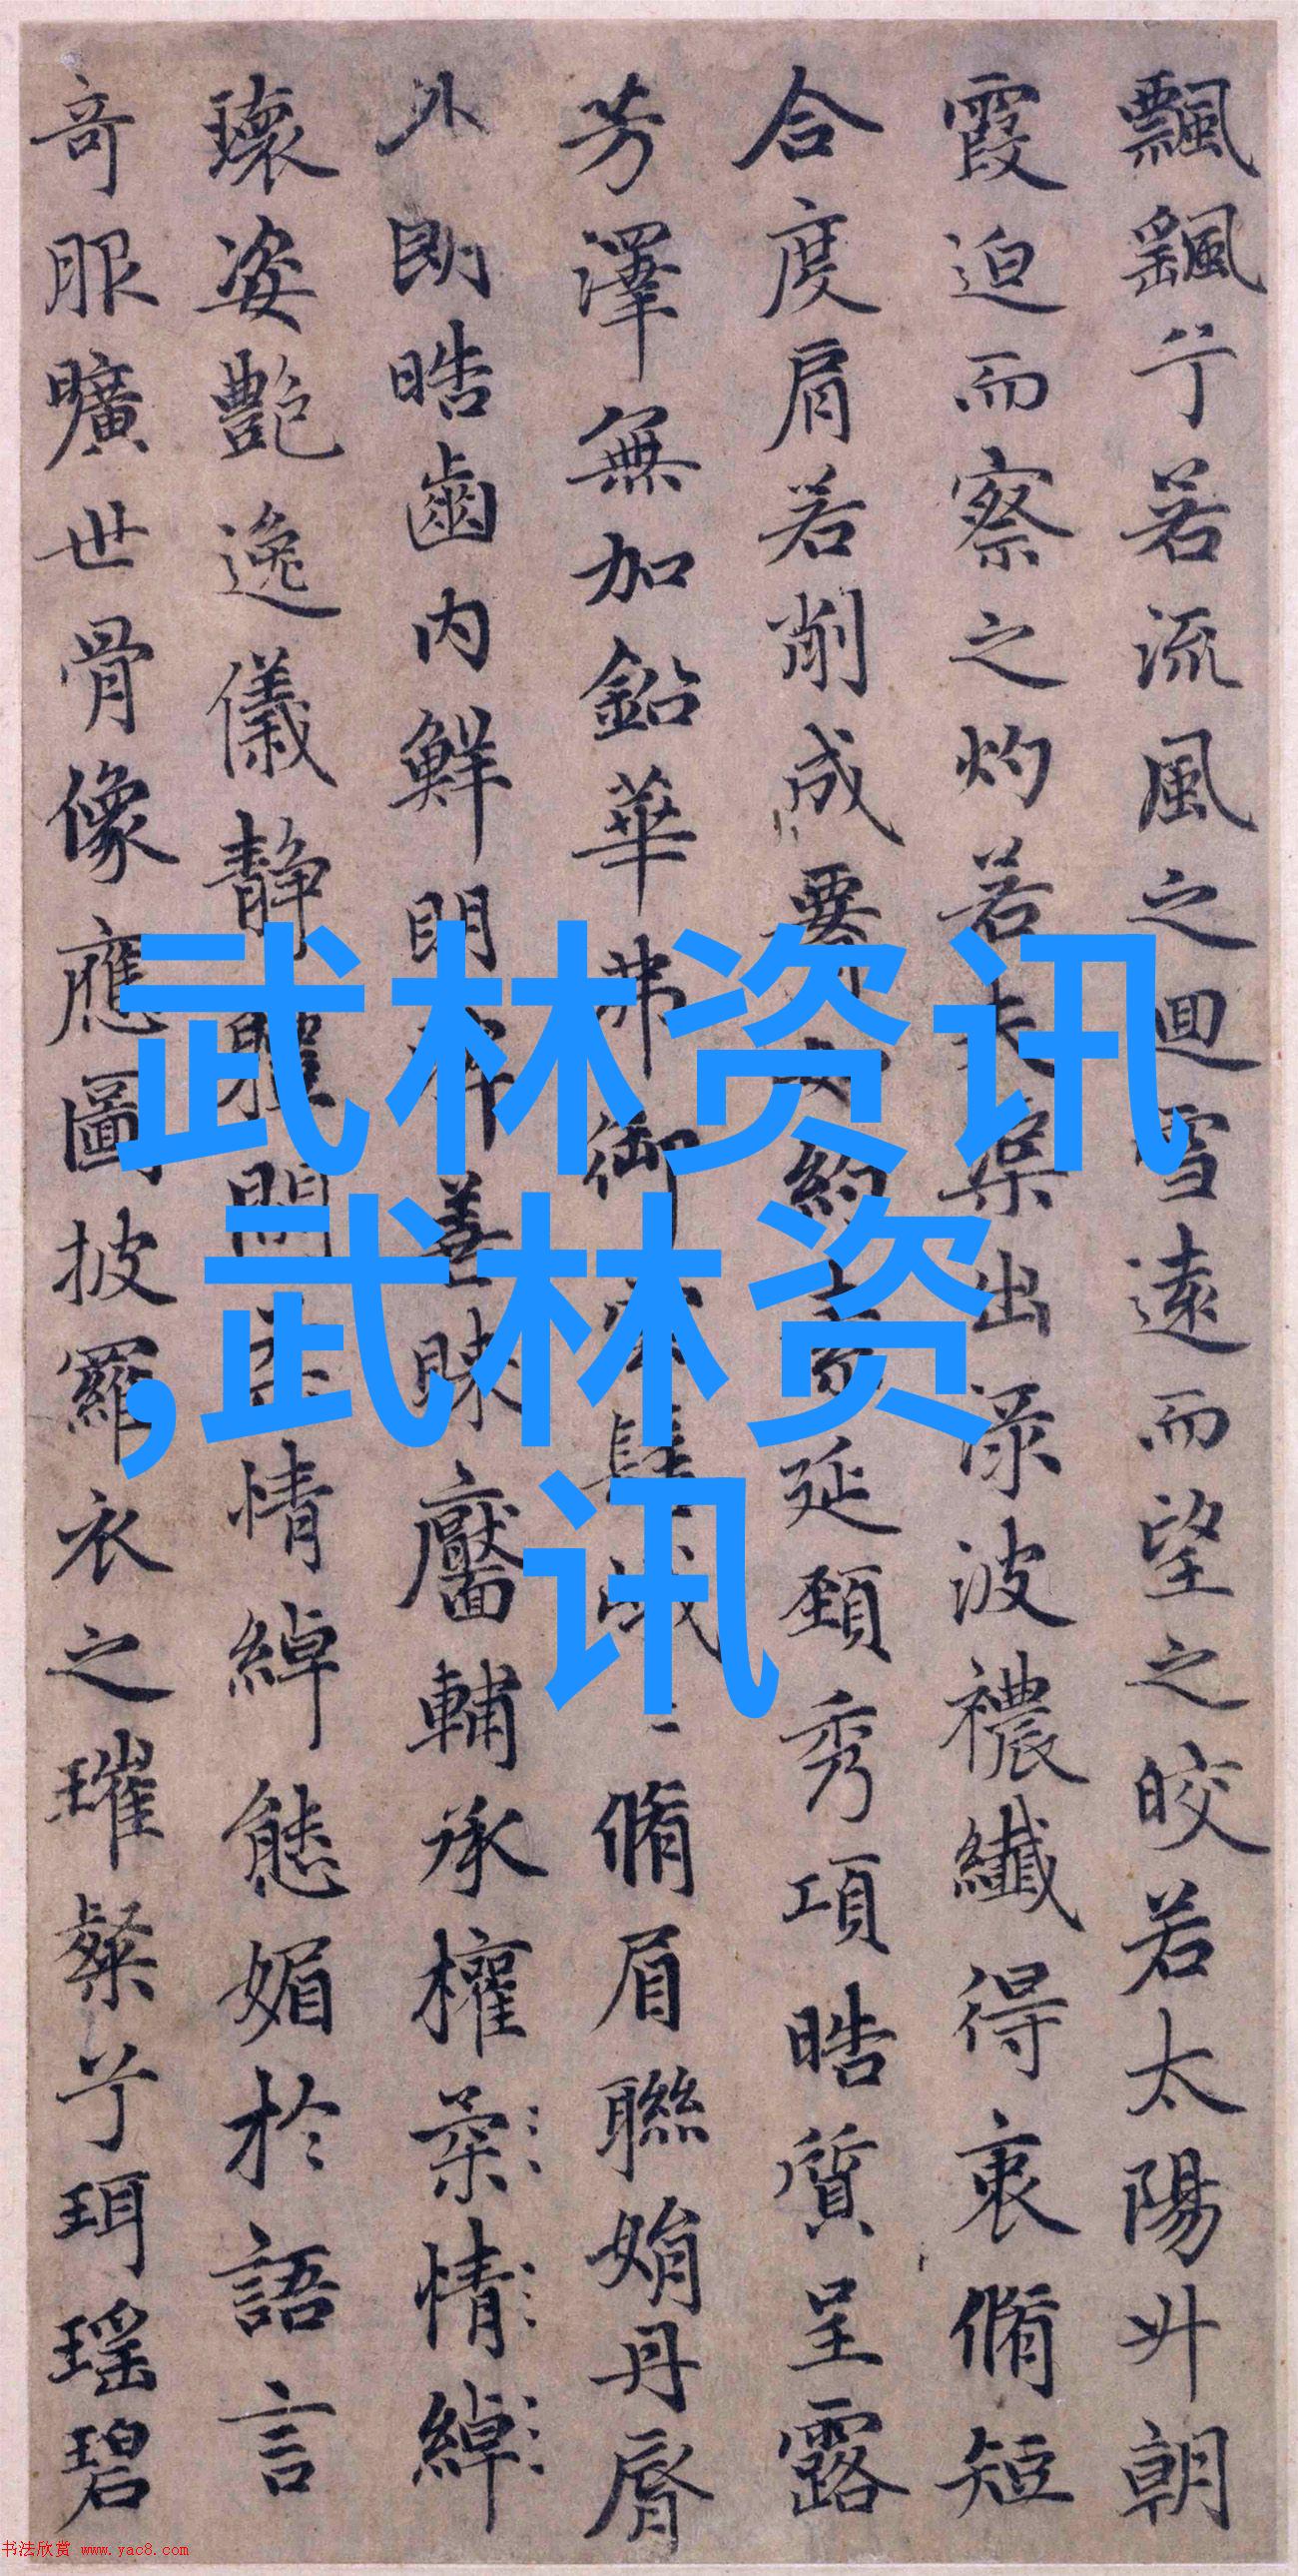 飄飖兮若流風之迴雪遠而望之皎若太陽升朝
霞迫而察之灼若夫蕖出渌波襛纖得衷脩短
合度肩若削成要約素延頸秀項皓質呈露
芳澤無加鉛華弗御脩眉聯娟丹脣
外朗皓齒內鮮明眸善睞靨輔承權柔情綽
瓌姿艷逸儀靜體閑情綽態媚於語言
奇服曠世骨像應圖披羅衣之璀粲兮珥瑶碧
武林资讯
,武林资
讯
书法欣赏 www.yac8.com